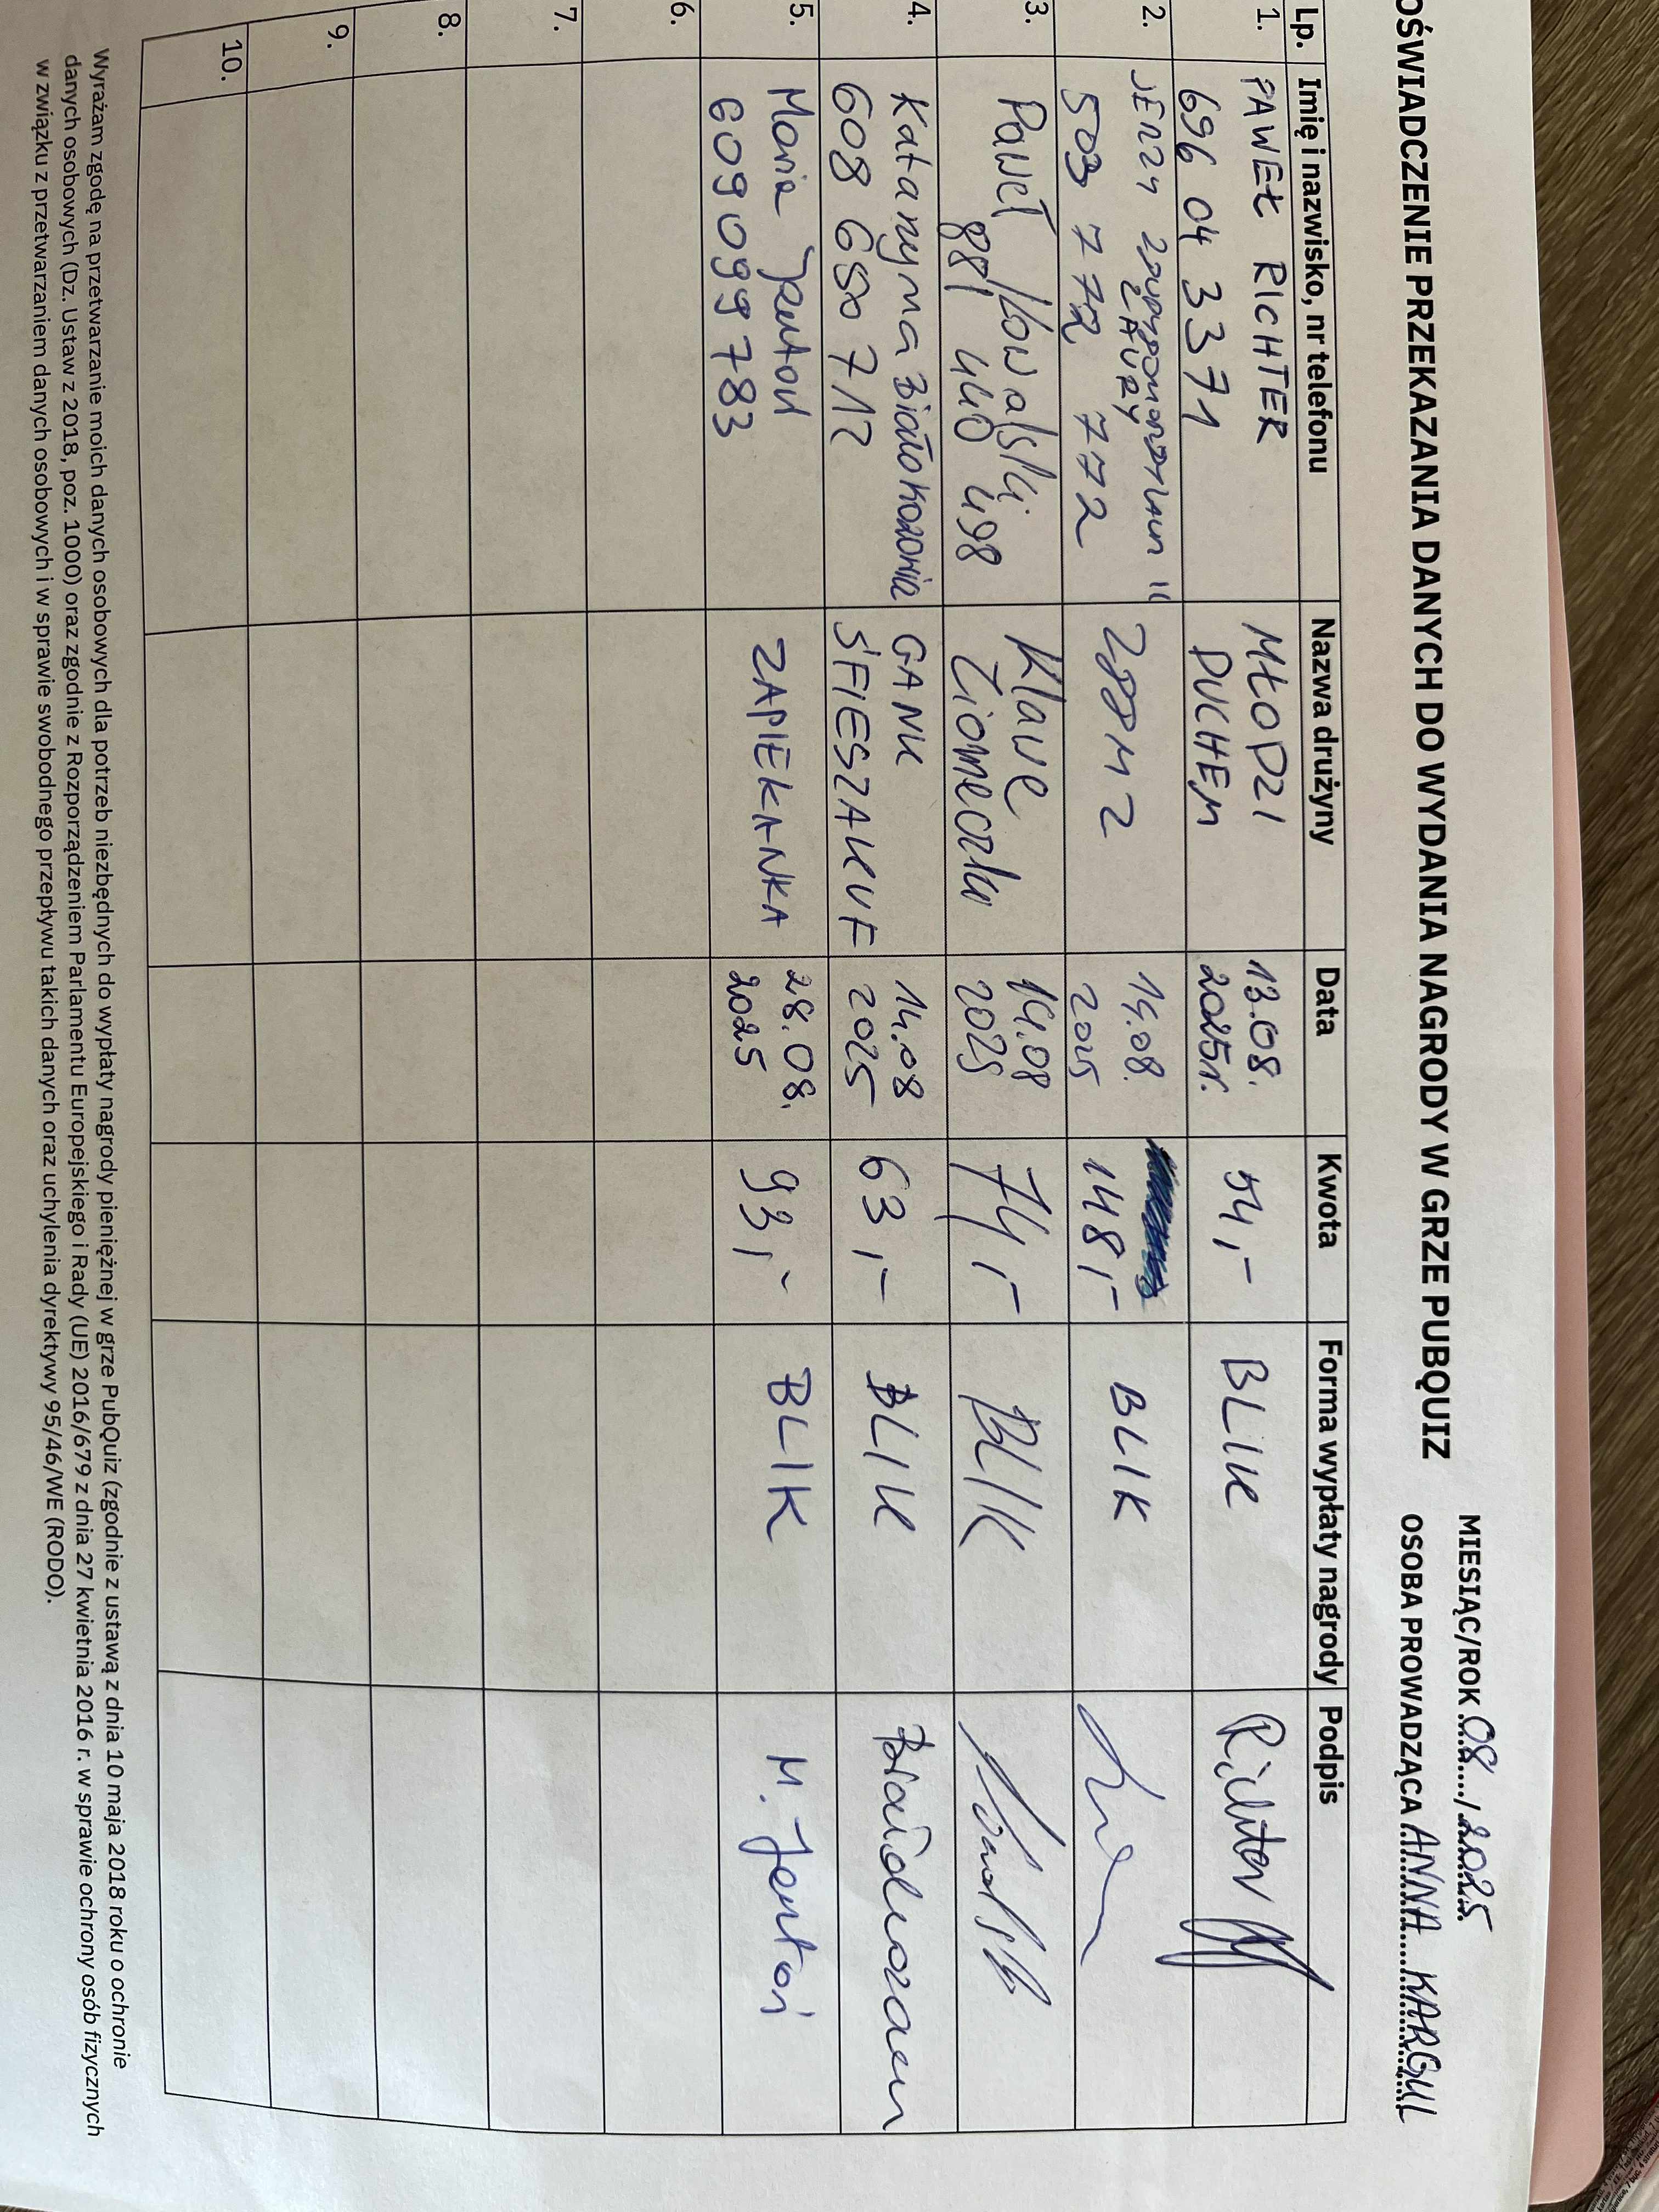 OŚWIADCZENIE PRZEKAZANIA DANYCH DO WYDANIA NAGRODY W GRZE PUBQUIZ
MIESIĄC/ROK 08 / 2025
OSOBA PROWADZĄCA ANNA KARGUL
Lp. Imię i nazwisko, nr telefonu Nazwa drużyny Data Kwota Forma wypłaty nagrody Podpis
1. PAWEŁ RICHTER MŁODZI 13.08. 54,- BLIK Richter
696 04 33 71 DUCHEM 2025r.
2. JERZY 14.08.
ZAURY
503 772 772 2025 148,- BLIK
3. Paweł Kowalski Klawe 14.08 74,- BLIK
881 440 498 Ziomeczki 2025
4. Katarzyna GANK 14.08 63,- BLIK
608 650 712 ŚFIESZAKUF 2025
5. Maria Jentoń ZAPIEKANKA 28.08. 93,- BLIK M. Jentoń
609 099 783 2025
6.
7.
8.
9.
10.
Wyrażam zgodę na przetwarzanie moich danych osobowych dla potrzeb niezbędnych do wypłaty nagrody pieniężnej w grze PubQuiz (zgodnie z ustawą z dnia 10 maja 2018 roku o ochronie
danych osobowych (Dz. Ustaw z 2018, poz. 1000) oraz zgodnie z Rozporządzeniem Parlamentu Europejskiego i Rady (UE) 2016/679 z dnia 27 kwietnia 2016 r. w sprawie ochrony osób fizycznych
w związku z przetwarzaniem danych osobowych i w sprawie swobodnego przepływu takich danych oraz uchylenia dyrektywy 95/46/WE (RODO).